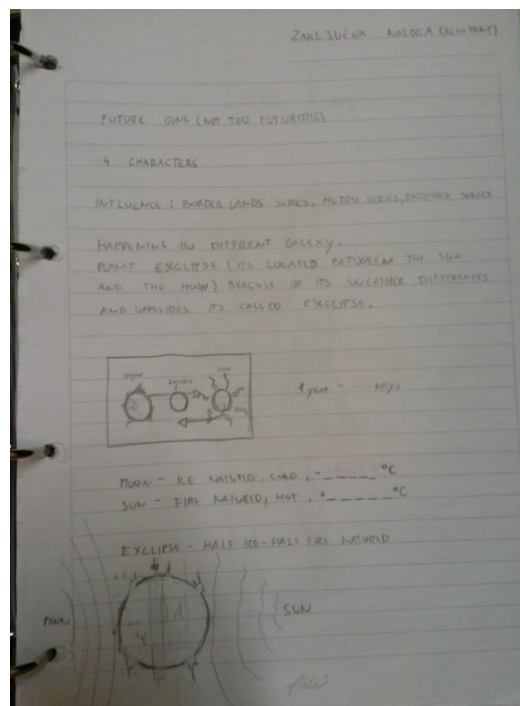 ZAKLJUČNA NALOGA
FUTURE GUNS (NOT TOO FUTURISTIC)
4 CHARACTERS
INFLUENCE : BORDER LANDS SERIES, METRO SERIES, BIOSHOCK SERIES
HAPPENING IN DIFFRENT GALEXY.
PLANT EXCLIPSE (ITS LOCATED BETWEEN THE SUN
AND THE MOON) BECAUSE OF ITS WEATHER DIFFERENCES
AND OPPOSIDES ITS CALLED EXCLIPSE.
MOON EXCLIPSE SUN
1 year - DAYS
MOON - ICE NATURED, COLD, - _ _ _ _ _ °C
SUN - FIRE NATURED, HOT, + _ _ _ _ _ °C
EXCLIPSE - HALF ICE - HALF FIRE NATURED
MOON SUN